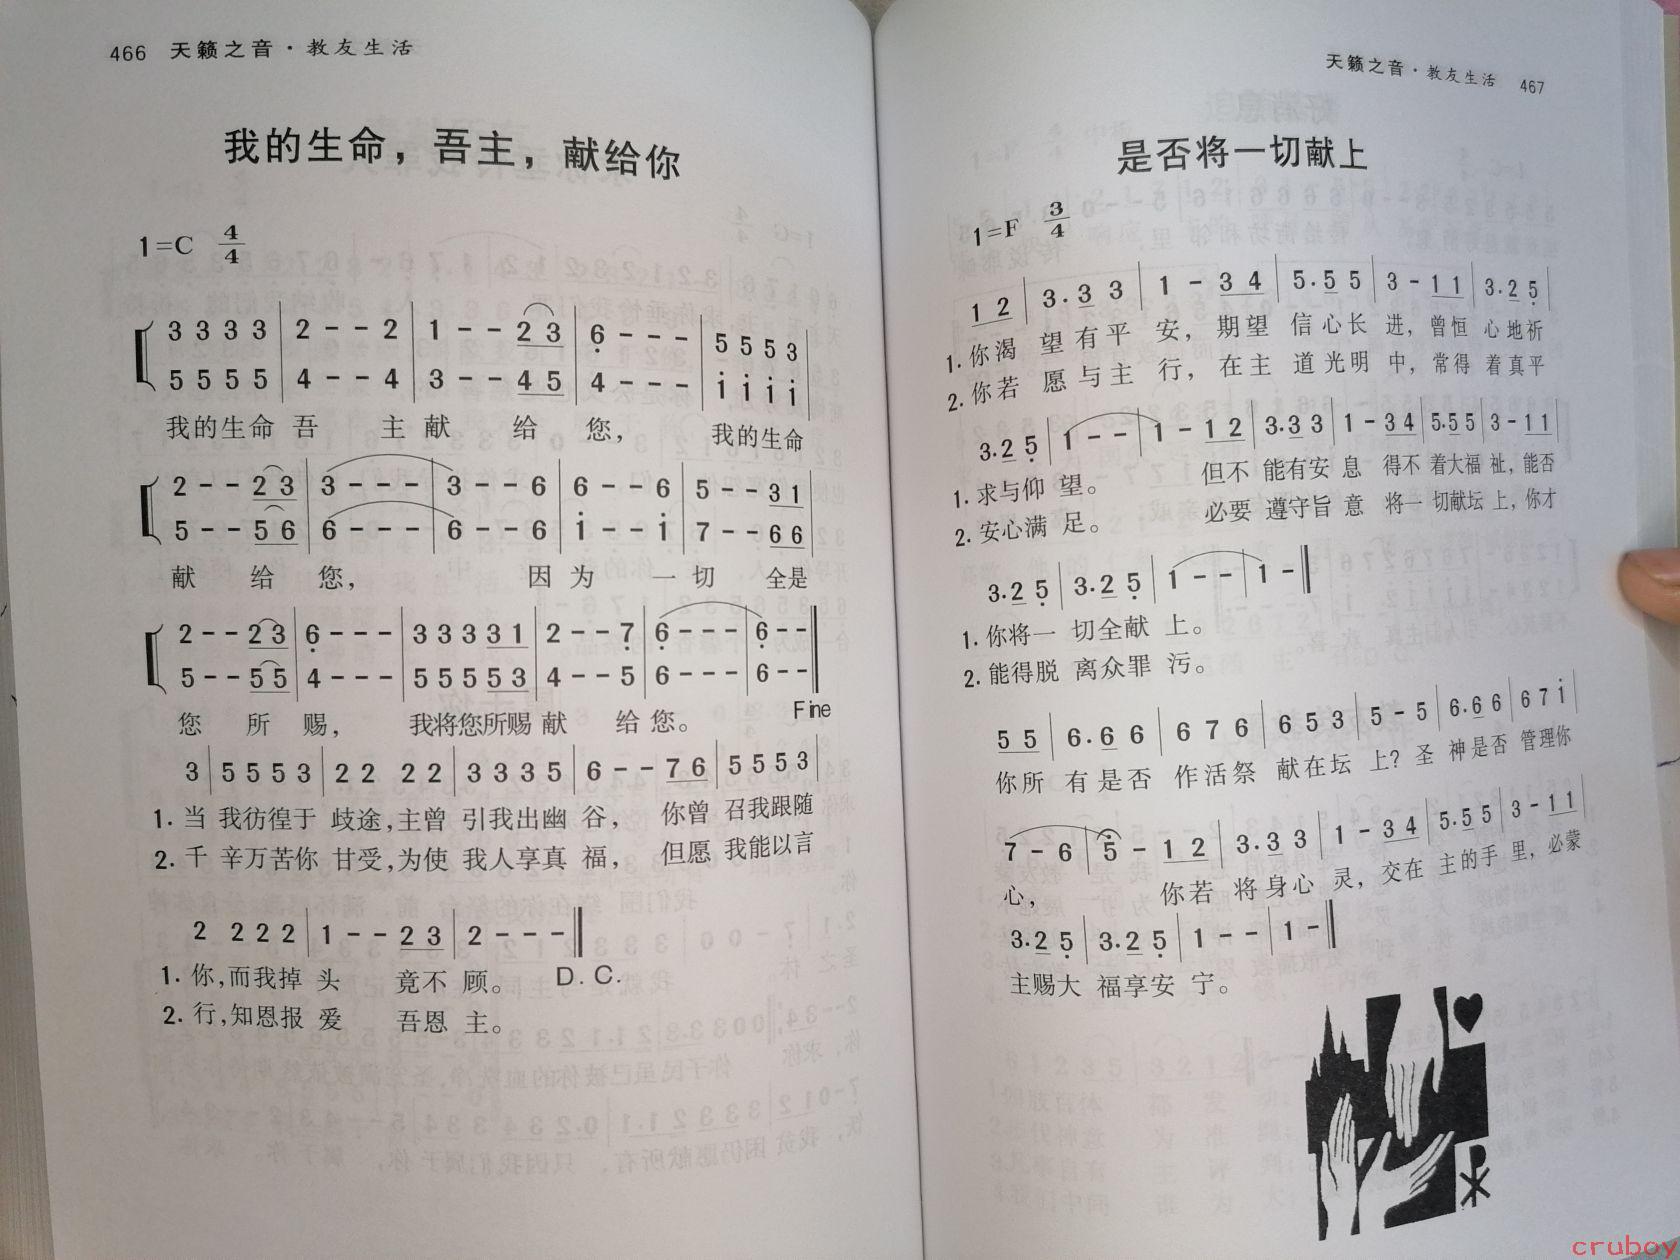 466 天籁之音·教友生活
我的生命，吾主，献给你
1=C 4/4
3 3 3 3 | 2 - - 2 | 1 - - 2 3 | 6 - - - | 5 5 5 3 |
5 5 5 5 | 4 - - 4 | 3 - - 4 5 | 4 - - - | i i i i |
我的生命 吾 主 献 给 您， 我的生命
2 - - 2 3 | 3 - - - | 3 - - 6 | 6 - - 6 | 5 - - 3 1 |
5 - - 5 6 | 6 - - - | 6 - - 6 | i - - i | 7 - - 6 6 |
献 给 您， 因 为 一 切 全是
2 - - 2 3 | 6 - - - | 3 3 3 3 1 | 2 - - 7 | 6 - - - | 6 - - ‖
5 - - 5 5 | 4 - - - | 5 5 5 5 3 | 4 - - 5 | 6 - - - | 6 - - ‖
您 所 赐， 我将您所赐 献 给 您。 Fine
3 | 5 5 5 3 | 2 2 2 2 | 3 3 3 5 | 6 - - 7 6 | 5 5 5 3 |
1. 当 我彷徨于 歧途，主曾 引我出幽 谷， 你曾 召我跟随
2. 千 辛万苦你 甘受，为使 我人享真 福， 但愿 我能以言
2 2 2 2 | 1 - - 2 3 | 2 - - - ‖
1. 你，而我掉 头 竟不 顾。 D.C.
2. 行，知恩报 爱 吾恩 主。
天籁之音·教友生活 467
是否将一切献上
1=F 3/4
1 2 | 3·3 3 | 1 - 3 4 | 5·5 5 | 3 - 1 1 | 3·2 5 |
1. 你渴 望有平 安， 期望 信心长 进，曾恒 心地祈
2. 你若 愿与主 行， 在主 道光明 中，常得 着真平
3·2 5 | 1 - - | 1 - 1 2 | 3·3 3 | 1 - 3 4 | 5·5 5 | 3 - 1 1 |
1. 求与仰 望。 但不 能有安 息 得不 着大福 祉，能否
2. 安心满 足。 必要 遵守旨 意 将一 切献坛 上，你才
3·2 5 | 3·2 5 | 1 - - | 1 - ‖
1. 你将一 切全献 上。
2. 能得脱 离众罪 污。
5 5 | 6·6 6 | 6 7 6 | 6 5 3 | 5 - 5 | 6·6 6 | 6 7 i |
你所 有是否 作活祭 献在坛 上？圣 神是否 管理你
7 - 6 | 5 - 1 2 | 3·3 3 | 1 - 3 4 | 5·5 5 | 3 - 1 1 |
心， 你若 将身心 灵，交在 主的手 里，必蒙
3·2 5 | 3·2 5 | 1 - - | 1 - ‖
主赐大 福享安 宁。
cruboy